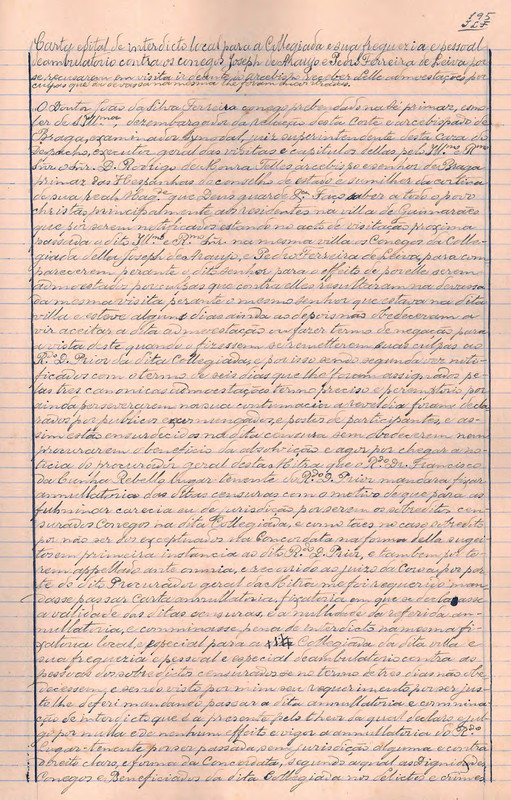 195
Carta edital de interdicto local para a Collegiada e sua freguezia e pessoal
deambulatorio contra os conegos Joseph de Araujo e Pedro Ferreira de Leiva por
se recusarem em visita ir deante o arcebispo receber delle admoestações por
culpas que de vassa na mesma lhe foram encontradas.
O Doutor João da Silva Ferreira conego prebendado na Sé primaz,
desembargador da relação desta corte e arcebispado de
Braga, examinador synodal, juiz superintendente desta cura do
despacho, executor geral das visitas e capitulos dellas pelo Ill.mo R.mo
Snr. o Snr. D. Rodrigo de Moura Telles arcebispo e senhor de Braga
primaz das Hespanhas do conselho de estado e sumilher da cortina
de sua real Mag.de que Deus guarde &. Faço saber a todo o povo
christão principalmente aos residentes na villa de Guimarães
que por serem notificados estando no acto de visitação proxima
passada o dito Ill.mo e R.mo Snr. na mesma villa os Conegos da Colle-
giada della Joseph de Araujo, e Pedro Ferreira de Leiva, para com-
parecerem perante o dito senhor para o effeito de por elle serem
admoestados por culpas que contra elles resultaram na devassa
da mesma visita perante o mesmo senhor que estava na dita
villa e esteve alguns dias ainda ao depois não obedeceram a
vir aceitar a dita admoestação ou fazer termo de negação para
á vista deste quando o fizessem se remetterem suas culpas ao
R.do D. Prior da dita Collegiada, e por isso sendo segunda vez noti-
ficados com o termo de seis dias que lhe foram assignados pe-
las tres canonicas admoestações termo preciso e peremptorio, por
ainda perseverarem na sua contumacia e revelia foram decla-
rados por publicos excommungados, e postos de participantes, e as-
sim estão ensurdecidos na dita censura sem obedecerem nem
procurarem o beneficio da absolvição e agora por chegar a no-
ticia do procurador geral desta Mitra que o R.do Dr. Francisco
da Cunha Rebello lugar tenente do R.do D. Prior mandara fixar
annullatoria das ditas censuras com o motivo de que para as
fulminar carecia eu de jurisdição por serem os sobreditos cen-
surados Conegos na dita Collegiada, e como taes no caso sobredito
por não ser dos exceptuados na Concordata na forma della sugei-
tos em primeira instancia ao dito R.do D. Prior, e tambem por te-
rem appellado ante omnia, e recorrido ao juizo da Coroa por por
parte do dito Procurador geral da Mitra me foi requerido man-
dasse passar carta annullatoria, fixatoria em que se declarasse
a validade das ditas censuras, e a nullidade da referida an-
nullatoria, e comminasse pena de interdicto na mesma fi-
xatoria local, e especial para a Collegiada da dita villa e
sua freguezia e pessoal e especial deambulatorio contra as
pessoas dos sobreditos censurados se no termo de tres dias não obe-
decessem, e sendo visto por mim seu requerimento por ser jus-
to lhe deferi mandando passar a dita annullatoria e commina-
ção de interdicto que é a presente pelo theor da qual declaro e jul-
go por nulla e de nenhum effeito e vigor a annullatoria do R.do
Lugar-tenente por ser passada sem jurisdição alguma e contra
direito claro, e forma da Concordata, segundo a qual as Dignidades
Conegos e Beneficiados da dita Collegiada nos delictos e crimes